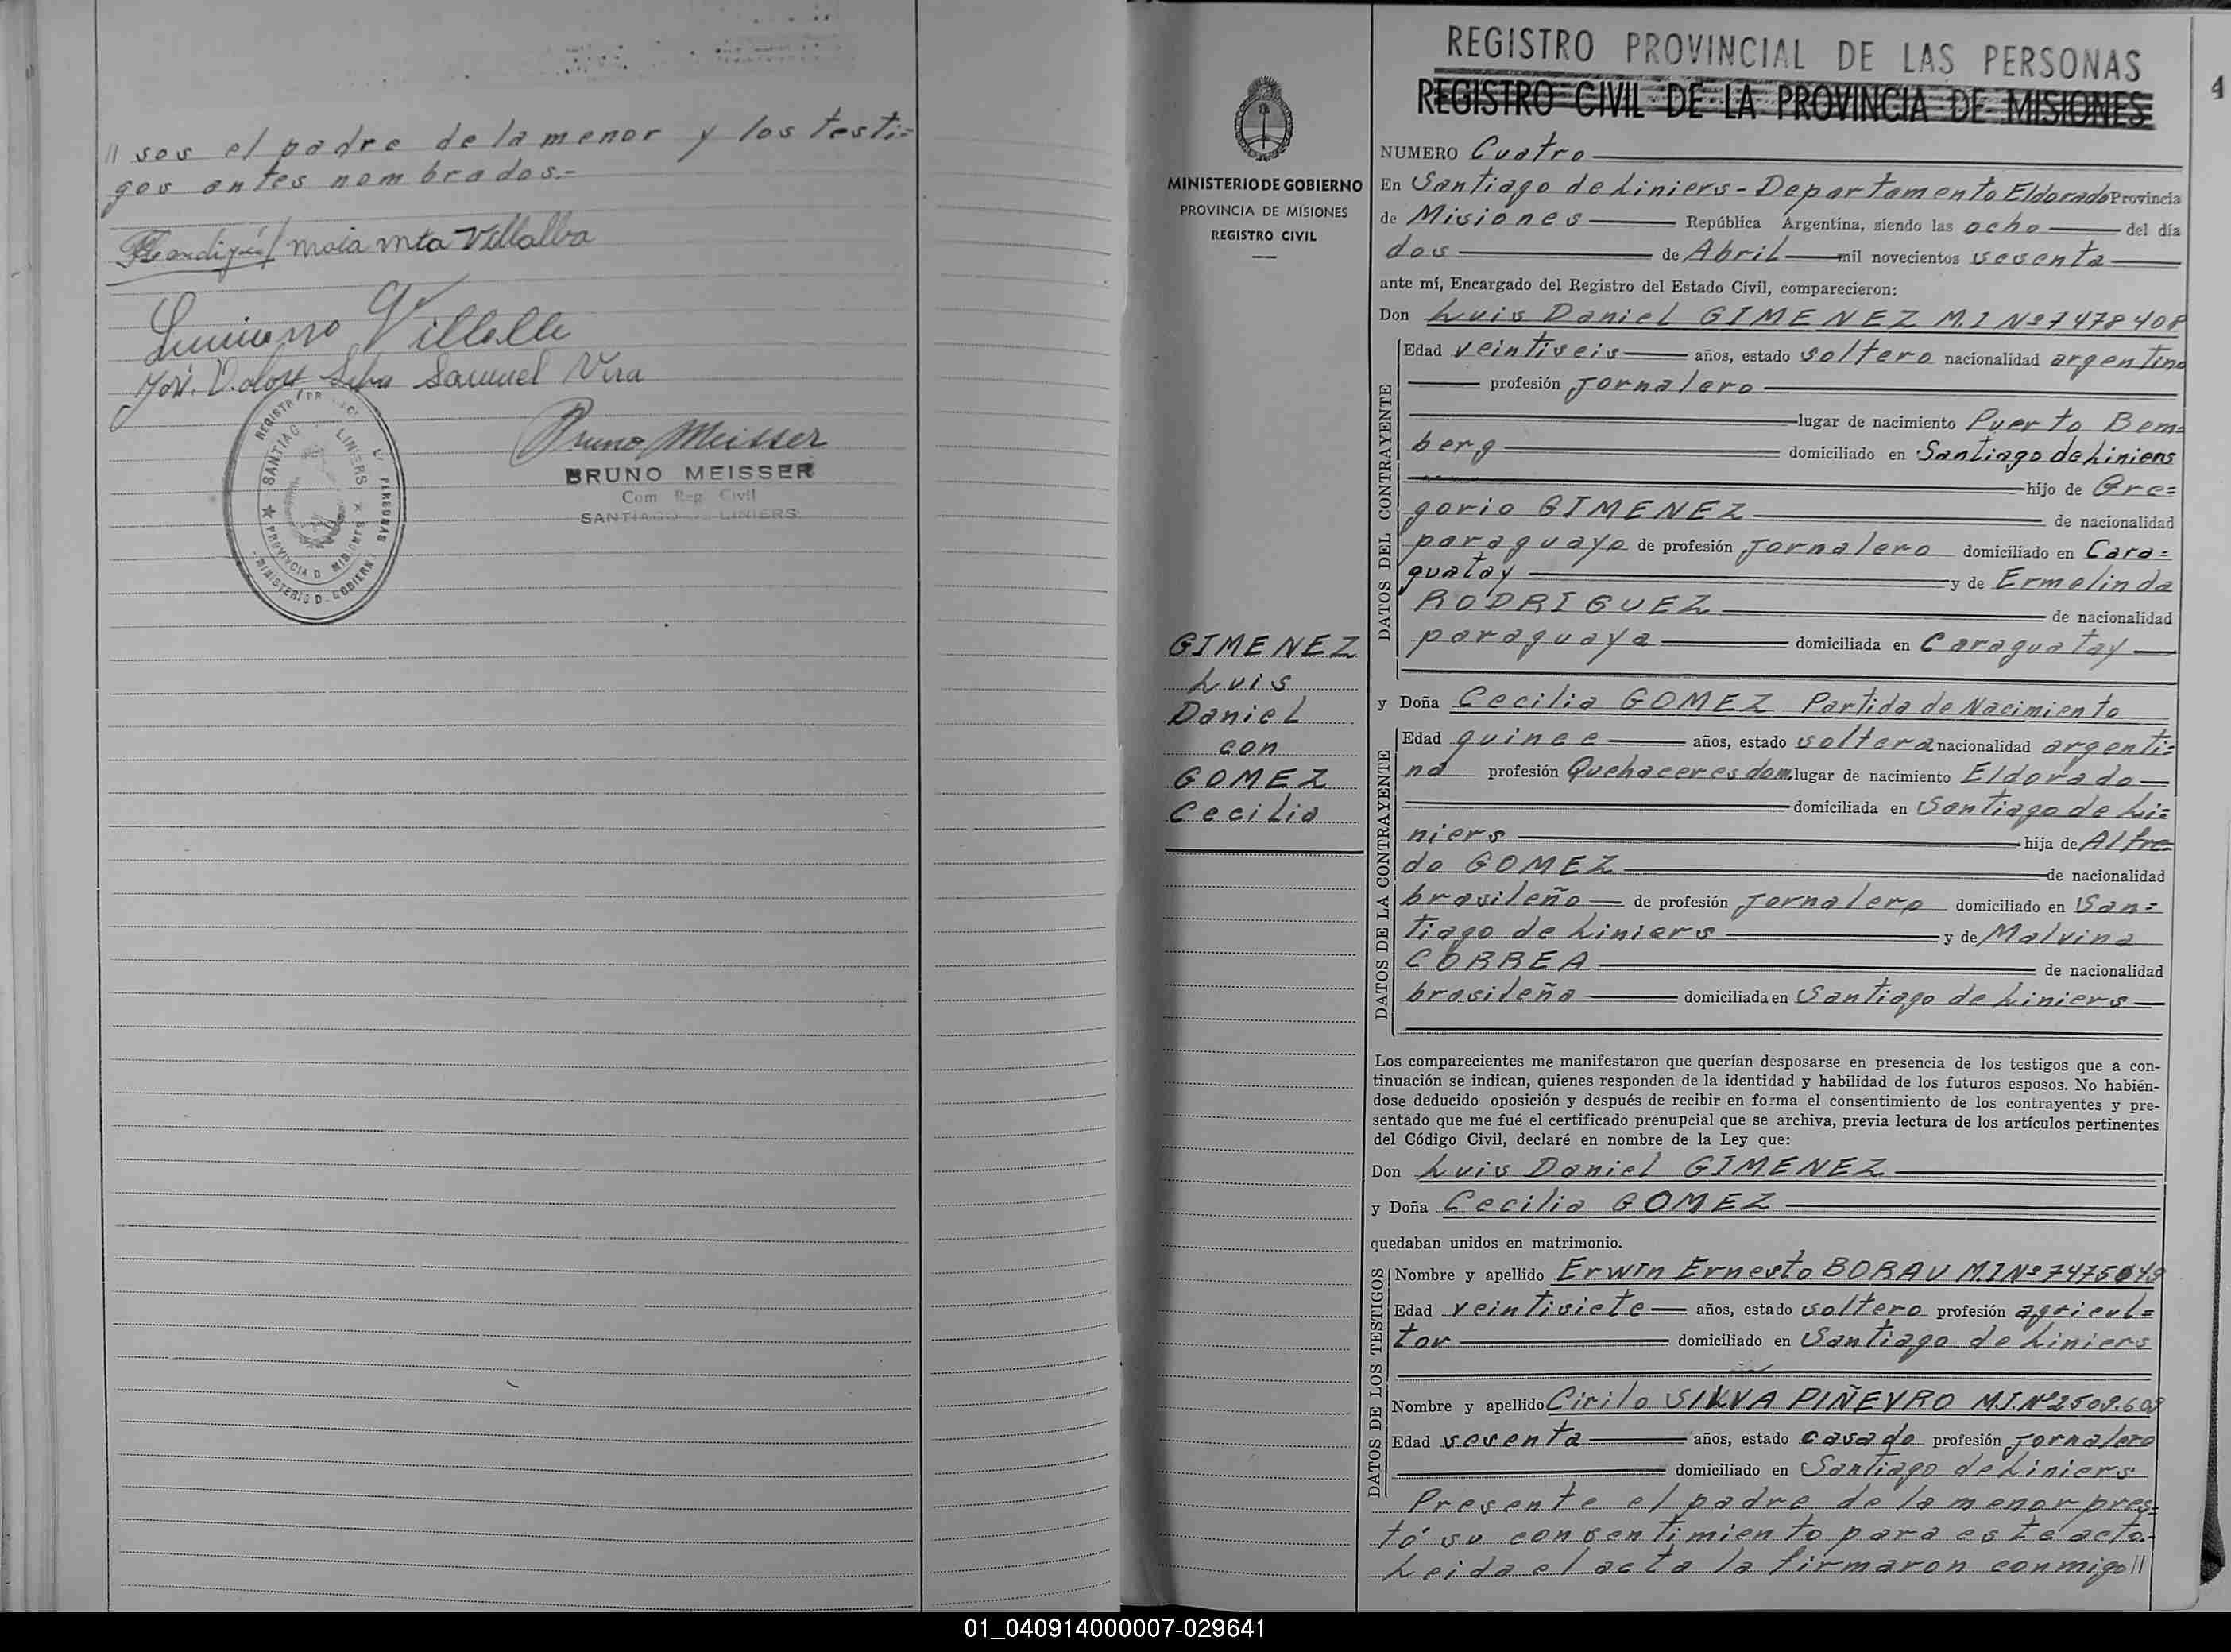 // sos el padre de la menor y los testi=
gos antes nombrados.-
Villalba
Luciano Villalba
Silva Samuel Vera
Bruno Meisser
BRUNO MEISSER
Com Reg Civil
SANTIAGO DE LINIERS
SANTIAGO LINIERS
PROVINCIA D MISIONES
MINISTERIO D GOBIERN
REGISTRO PROVINCIAL DE LAS PERSONAS
REGISTRO CIVIL DE LA PROVINCIA DE MISIONES
4
MINISTERIO DE GOBIERNO
PROVINCIA DE MISIONES
REGISTRO CIVIL
GIMENEZ
Luis
Daniel
con
GOMEZ
Cecilia
NUMERO Cuatro
En Santiago de Liniers - Departamento Eldorado Provincia
de Misiones República Argentina, siendo las ocho del día
dos de Abril mil novecientos sesenta
ante mí, Encargado del Registro del Estado Civil, comparecieron:
Don Luis Daniel GIMENEZ M.I Nº 7478408
DATOS DEL CONTRAYENTE
Edad veintiseis años, estado soltero nacionalidad argentino
profesión Jornalero
lugar de nacimiento Puerto Bem=
berg domiciliado en Santiago de Liniers
hijo de Gre=
gorio GIMENEZ de nacionalidad
paraguayo de profesión Jornalero domiciliado en Cara=
guatay y de Ermelinda
RODRIGUEZ de nacionalidad
paraguaya domiciliada en Caraguatay
y Doña Cecilia GOMEZ Partida de Nacimiento
DATOS DE LA CONTRAYENTE
Edad quince años, estado soltera nacionalidad argenti=
na profesión Quehaceres dom. lugar de nacimiento Eldorado
domiciliada en Santiago de Li=
niers hija de Alfre=
do GOMEZ de nacionalidad
brasileño de profesión Jornalero domiciliado en San=
tiago de Liniers y de Malvina
CORREA de nacionalidad
brasileña domiciliada en Santiago de Liniers
Los comparecientes me manifestaron que querían desposarse en presencia de los testigos que a con-
tinuación se indican, quienes responden de la identidad y habilidad de los futuros esposos. No habién-
dose deducido oposición y después de recibir en forma el consentimiento de los contrayentes y pre-
sentado que me fué el certificado prenupcial que se archiva, previa lectura de los artículos pertinentes
del Código Civil, declaré en nombre de la Ley que:
Don Luis Daniel GIMENEZ
y Doña Cecilia GOMEZ
quedaban unidos en matrimonio.
DATOS DE LOS TESTIGOS
Nombre y apellido Erwin Ernesto BORAU M.I Nº 7475049
Edad veintisiete años, estado soltero profesión agricul=
tor domiciliado en Santiago de Liniers
Nombre y apellido Cirilo SILVA PIÑEYRO M.I. Nº 2509.609
Edad sesenta años, estado casado profesión Jornalero
domiciliado en Santiago de Liniers
Presente el padre de la menor pres=
tó su consentimiento para este acto.-
Leida el acta la firmaron conmigo //
01_040914000007-029641